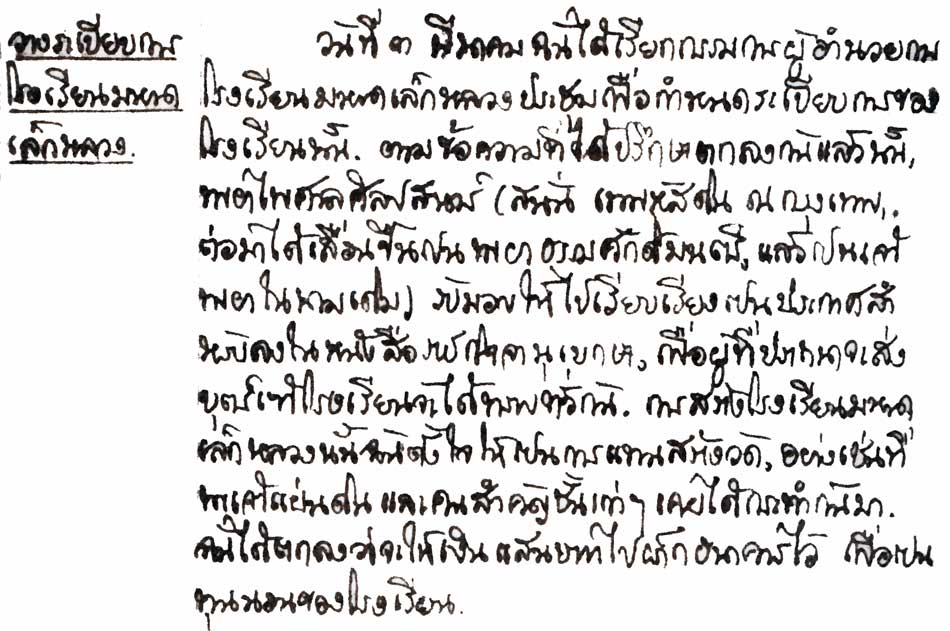 วางระเบียบการ
โรงเรียนมหาด
เล็กหลวง.
วันที่ ๓ มีนาคม ฉันได้เรียกกรรมการผู้อำนวยการ
โรงเรียนมหาดเล็กหลวงประชุมเพื่อกำหนดระเบียบการของ
โรงเรียนนั้น. ตามข้อความที่ได้ปรึกษาตกลงกันแล้วนั้น,
พระยาไพศาลศิลปสาตร์ (สนั่น เทพหัสดิน ณ กรุงเทพ,
ต่อมาได้เลื่อนขึ้นเปนพระยาธรรมศักดิ์มนตรี, แล้วเปนเจ้า
พระยาในนามเดิม) รับมอบให้ไปเรียบเรียงเปนประกาศสำ
หรับลงในหนังสือราชกิจจานุเบกษา, เพื่อผู้ที่ปรารถนาจะส่ง
บุตร์เข้าโรงเรียนจะได้ทราบทั่วกัน. การสร้างโรงเรียนมหาด
เล็กหลวงนั้นฉันตั้งใจให้เปนการแทนสร้างวัด, อย่างเช่นที่
พระเจ้าแผ่นดิน และคนสำคัญชั้นเก่าๆ เคยได้กระทำกันมา.
ฉันได้ตกลงว่าจะให้เงินแสนบาทไปฝากธนาคารไว้ เพื่อเปน
ทุนนอนของโรงเรียน.